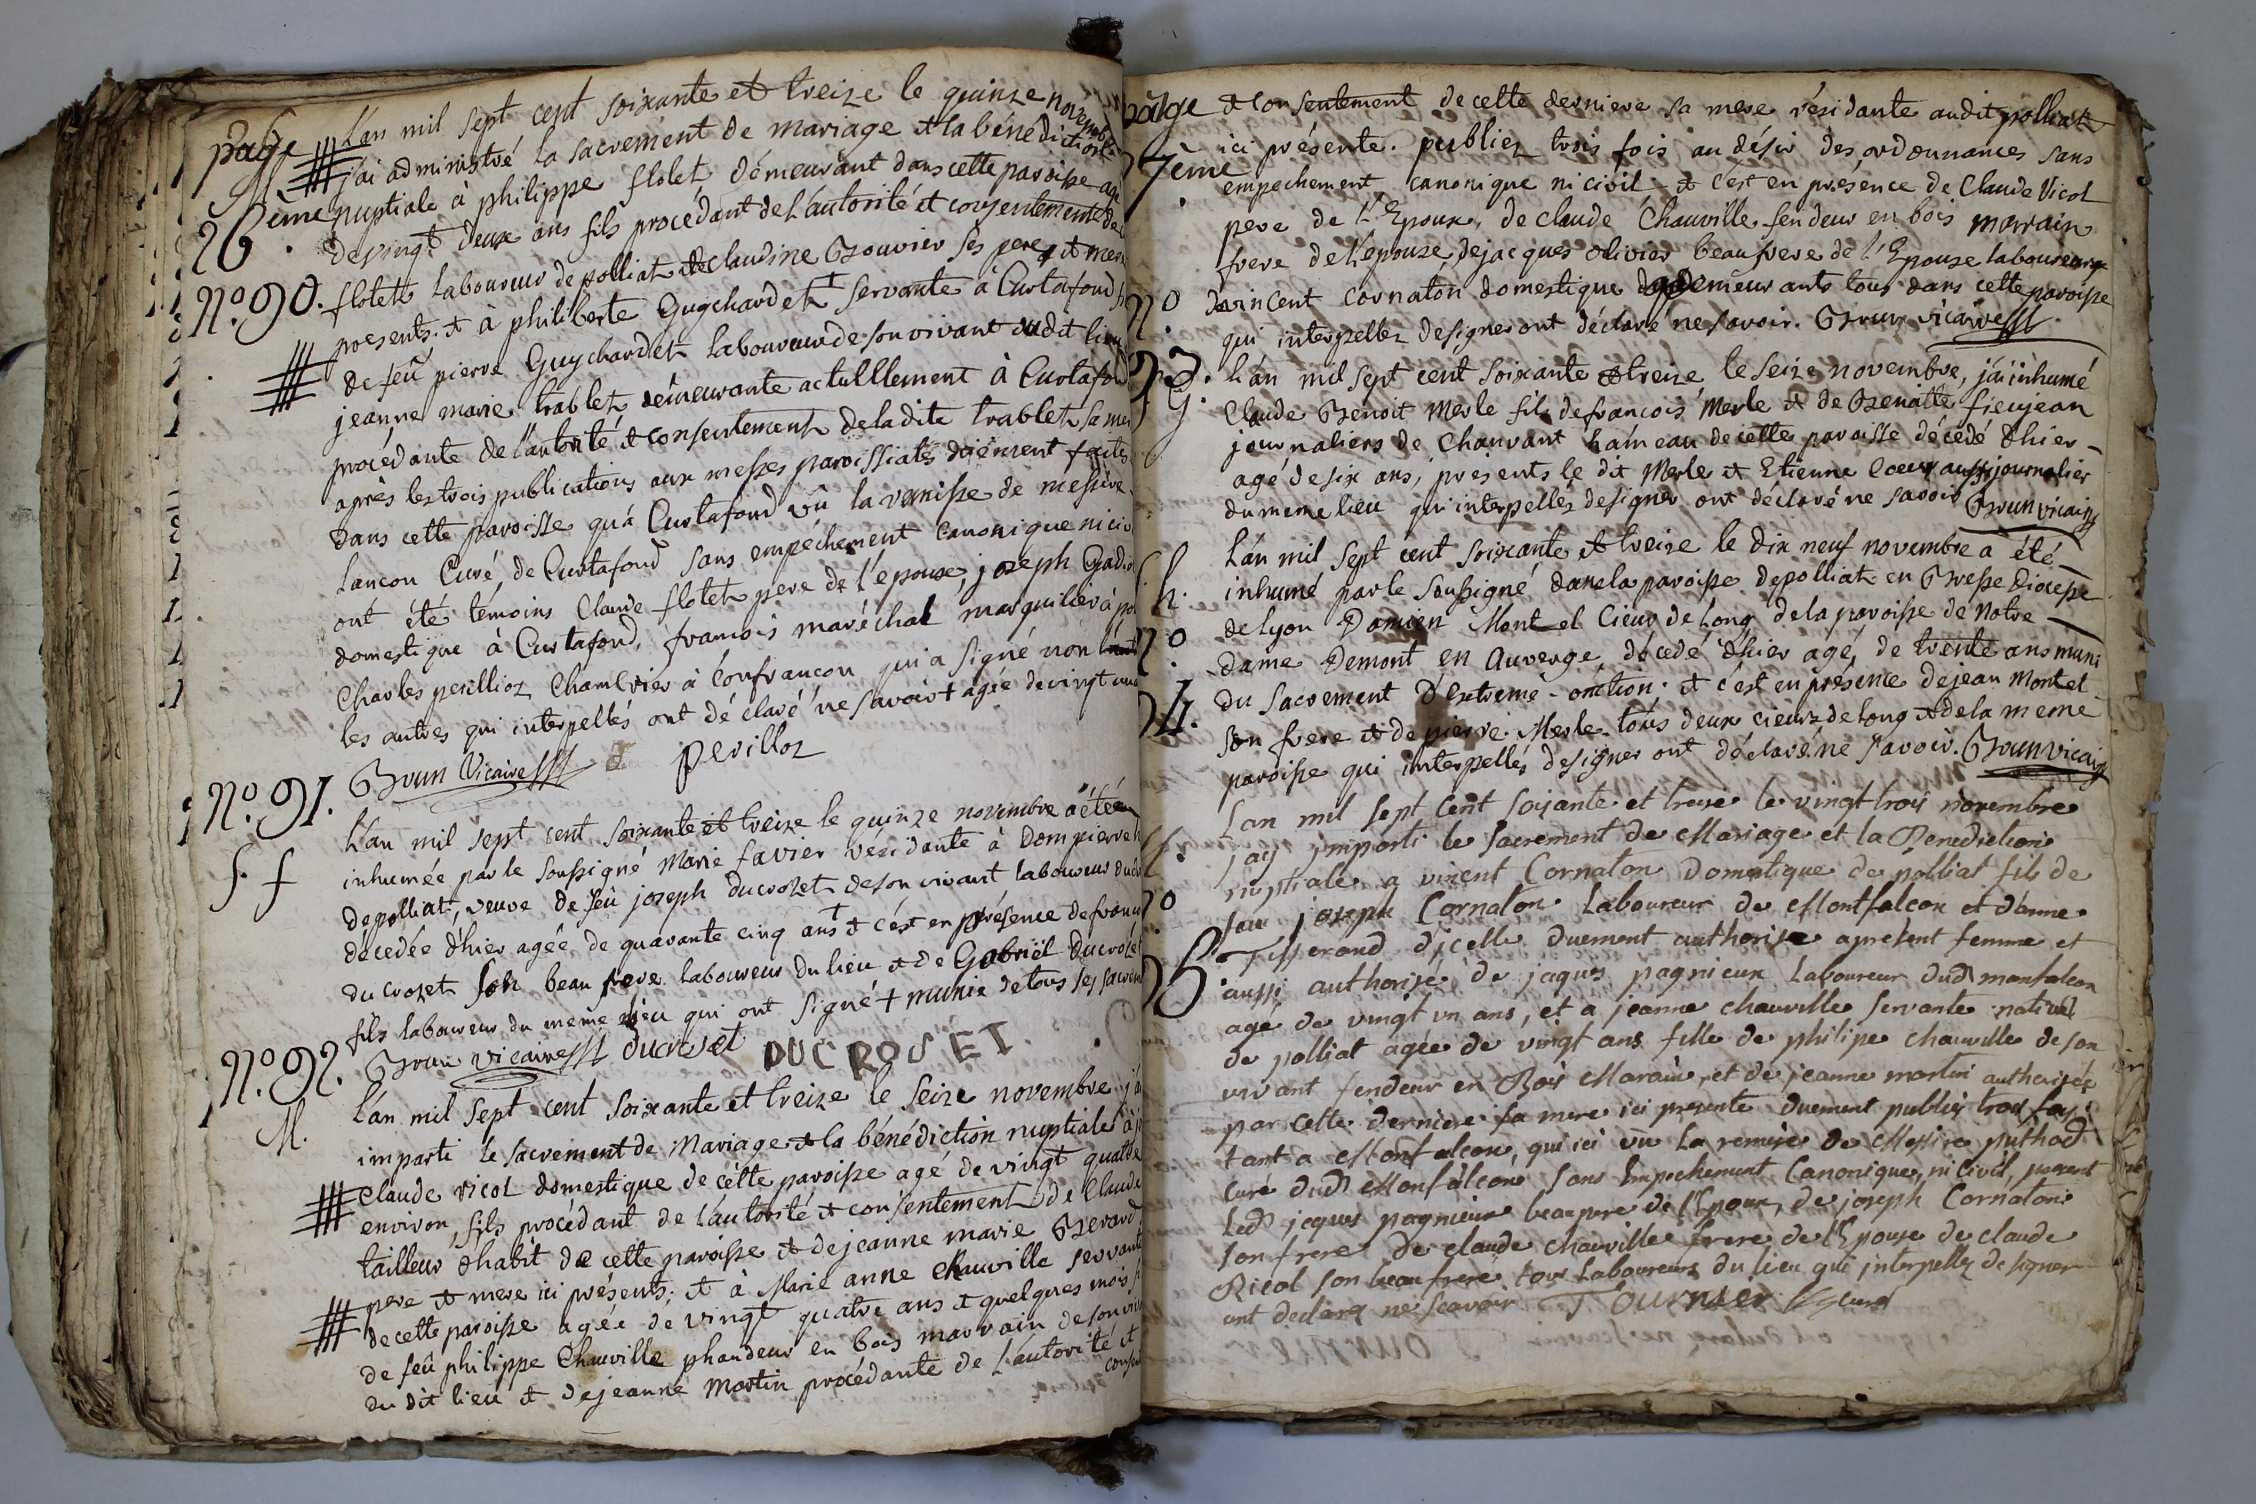 page
26ème
L'an mil sept cent soixante et treize le quinze novemb
j'ai administré la sacrement de mariage et la bénédiction
nuptiale à philippe flotet démeurant dans cette paroisse agé
de vingt deux ans fils procédant de l'autorité et consentement de
N.° 90. flotet laboureur de polliat et de claudine Bouvier ses pere et mere
presents. et à philiberte Guychardet + servante à Curtafond
de feû pierre Guychardet laboureur de son vivant dudit lieu
jeanne marie trablet démeurante actulllement à Curtafond
procédante de l'autorité et consentement de la dite trablet sa mer
après les trois publications aux messes paroissiales duement faites
dans cette paroisse qu'à Curtafond vû la remisse de messire
Lancon Curé de Curtafond sans empéchement canonique ni civ
ont été témoins Claude flotet pere de l'epoux, joseph
domestique à Curtafond, francois maréchal marguilier à
Charles perillioz Chambrier à Confrancon qui a signé non
les autres qui interpellés ont déclaré ne savoir + agée de vingt
Brun Vicaire perilloz
N.° 91.
f. f
L'an mil sept cent soixante et treize le quinze novembre a été
inhumée par le soussigné Marie favier residante à Dompierre
de polliat, veuve de feù joseph ducrozet de son vivant laboureur du
décedée d'hier agée de quarante cinq ans + et c'est en présence de franc
ducrozet son beau frere laboureur du lieu et de Gabriël Ducrozet
fils laboureur du même lieu qui ont signé + munie de tous ses sacrem
Brun vicaire ducroset DUCROSET.
N.° 92.
M.
L'an mil sept cent soixante et treize le seize novembre j'ai
imparti le sacrement de Mariage et la bénédiction nuptiale à
claude ricol domestique de cette paroisse agé de vingt quatre
environ, fils procédant de l'autorité et consentement de Claude
tailleur d'habit de cette paroisse et de jeanne marie Berard
pere et mere ici présents; et à Marie anne chauville servante
de cette paroisse agée de vingt quatre ans et quelques mois
de feû philippe Chauville phandeur en bois marrain de son viv
du dit lieu et de jeanne martin procédante de l'autorité et
conse
page
27ème
et consentement de cette derniere sa mere résidante audit polliat
ici présente. publiez trois fois au désir des ordonnances sans
empechement canonique ni civil et c'est en présence de Claude Vicol
pere de l'Epoux, de claude Chauville fendeur en bois marrain
frere de l'epouze, de jacques olivier beau frere de l'Epouze laboureur
de vincent cornaton domestique demeurants tous dans cette paroisse
qui interpellez de signer ont déclaré ne savoir. Brun vicaire
n.° 93.
L'an mil sept cent soixante et treize le seize novembre, j'ai inhumé
Claude Benoit Merle fils de francois Merle et de Benoitte fieujean
journaliers de Chanvant hameau de cette paroisse décédé d'hier
agé de six ans, présents le dit Merle et Etienne Coeur aussi journalier
du meme lieu qui interpellés de signer ont déclaré ne savoir Brun vicaire
n.° 94.
L'an mil sept cent soixante et treize le dix neuf novembre a été
inhumé par le soussigné dans la paroisse de polliat en Bresse Diocesse
de lyon Damien Montel Cieur de long de la paroisse de Notre
dame Demont en Auverge, décedé d'hier agé, de trente ans muni
du sacrement d'extreme-onction. et c'est en présence de jean Montel
son frere et de pierre Merle tous deux cieurs de long et de la meme
paroisse qui interpellés de signer ont déclaré ne savoir. Brun vicaire
n.° 95
L'an mil sept cent soixante et treze le vingt trois novembre
j'ay imparti le sacrement de Mariage et la Benediction
nuptiale a vincent Cornaton Domestique de polliat fils de
feu joseph Cornaton Laboureur de Montfalcon et d'anne
Tisserand d'icelle duement authorise apresent femme et
aussi authorise de jaques pagnieux laboureur dud monfalcon
agé de vingt un ans, et a jeanne chauville servante native
de polliat agée de vingt ans fille de philipe chauville de son
vivant fendeur en Bois Marain, et de jeanne martin authorisée
par cette derniere sa mere ici presente duement publiés trois foys
tant a Montfalcon, qui ici vu la remise de Messire puthod
curé dud Monfalcon, sans Empechement Canonique, ni Civil, present
Led jaques pagnieux beaupere de l'Epoux, de joseph Cornaton
son frere de claude chauville frere de l'Epouse de claude
Ricol son beau frere tous laboureurs du lieu qui interpellez de signer
ont declarez ne scavoir Tournier curé